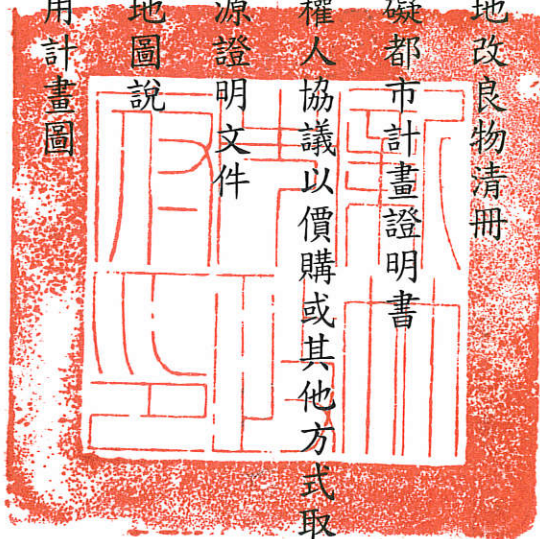 地改良物清冊
礙都市計畫證明書
權人協議以價購或其他方式取
源證明文件
地圖說
用計畫圖